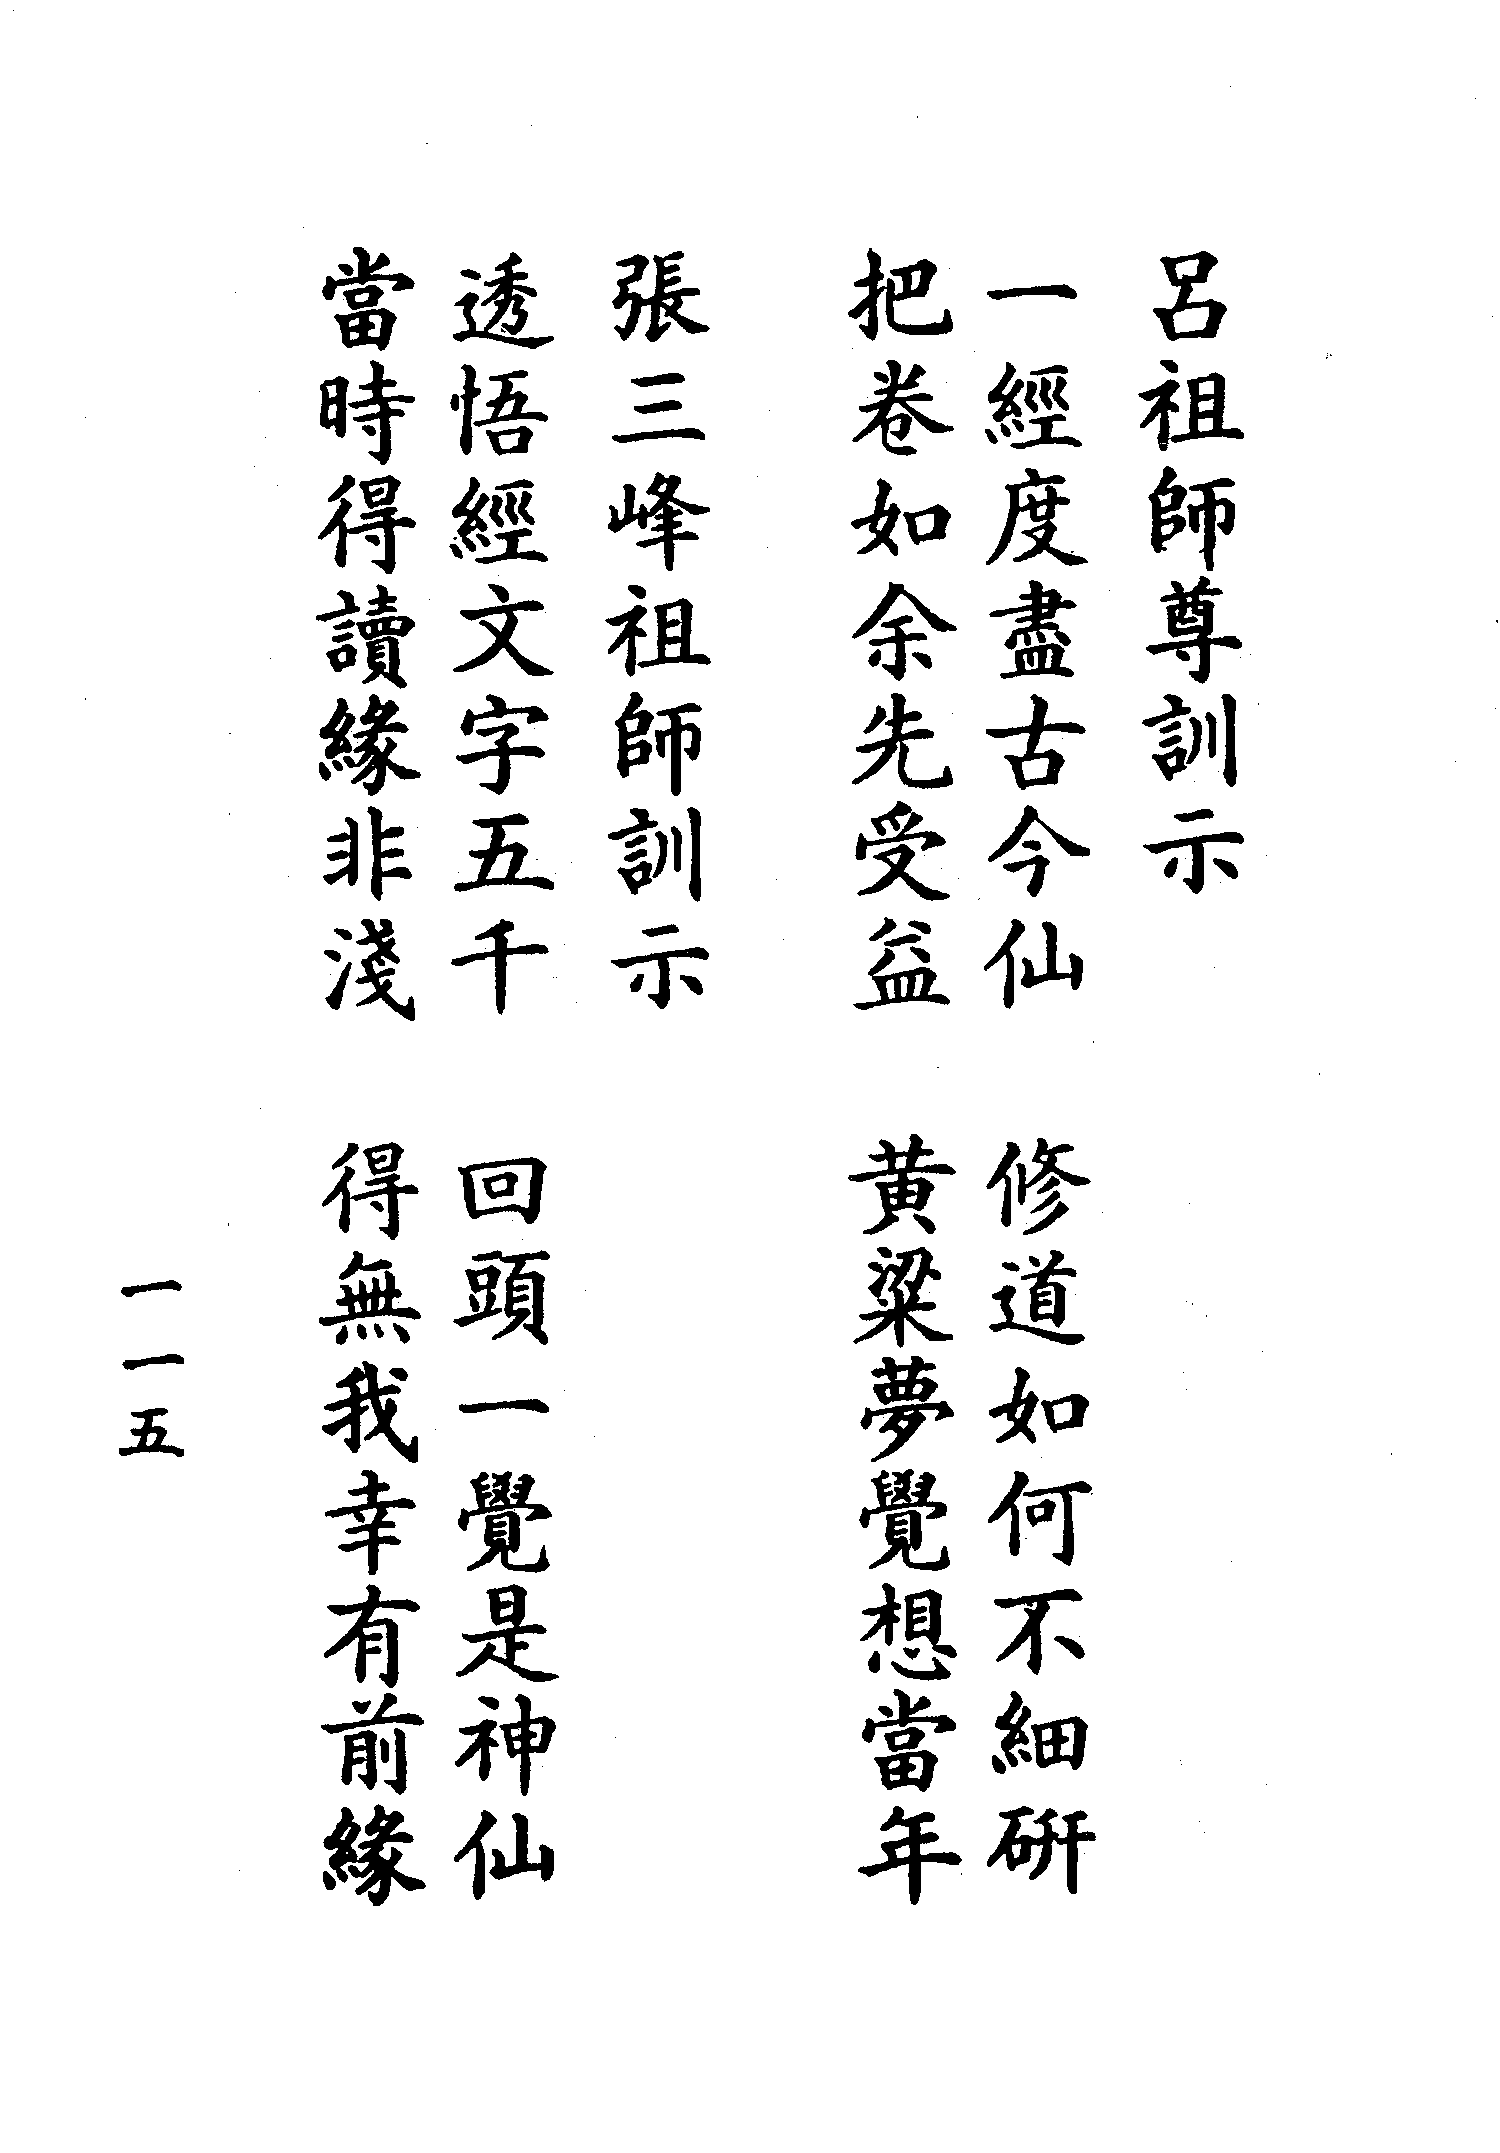 呂祖師尊訓示
一經度盡古今仙　修道如何不細研
把卷如余先受益　黄粱夢覺想當年
張三峰祖師訓示
透悟經文字五千　回頭一覺是神仙
當時得讀緣非淺　得無我幸有前緣
一一五